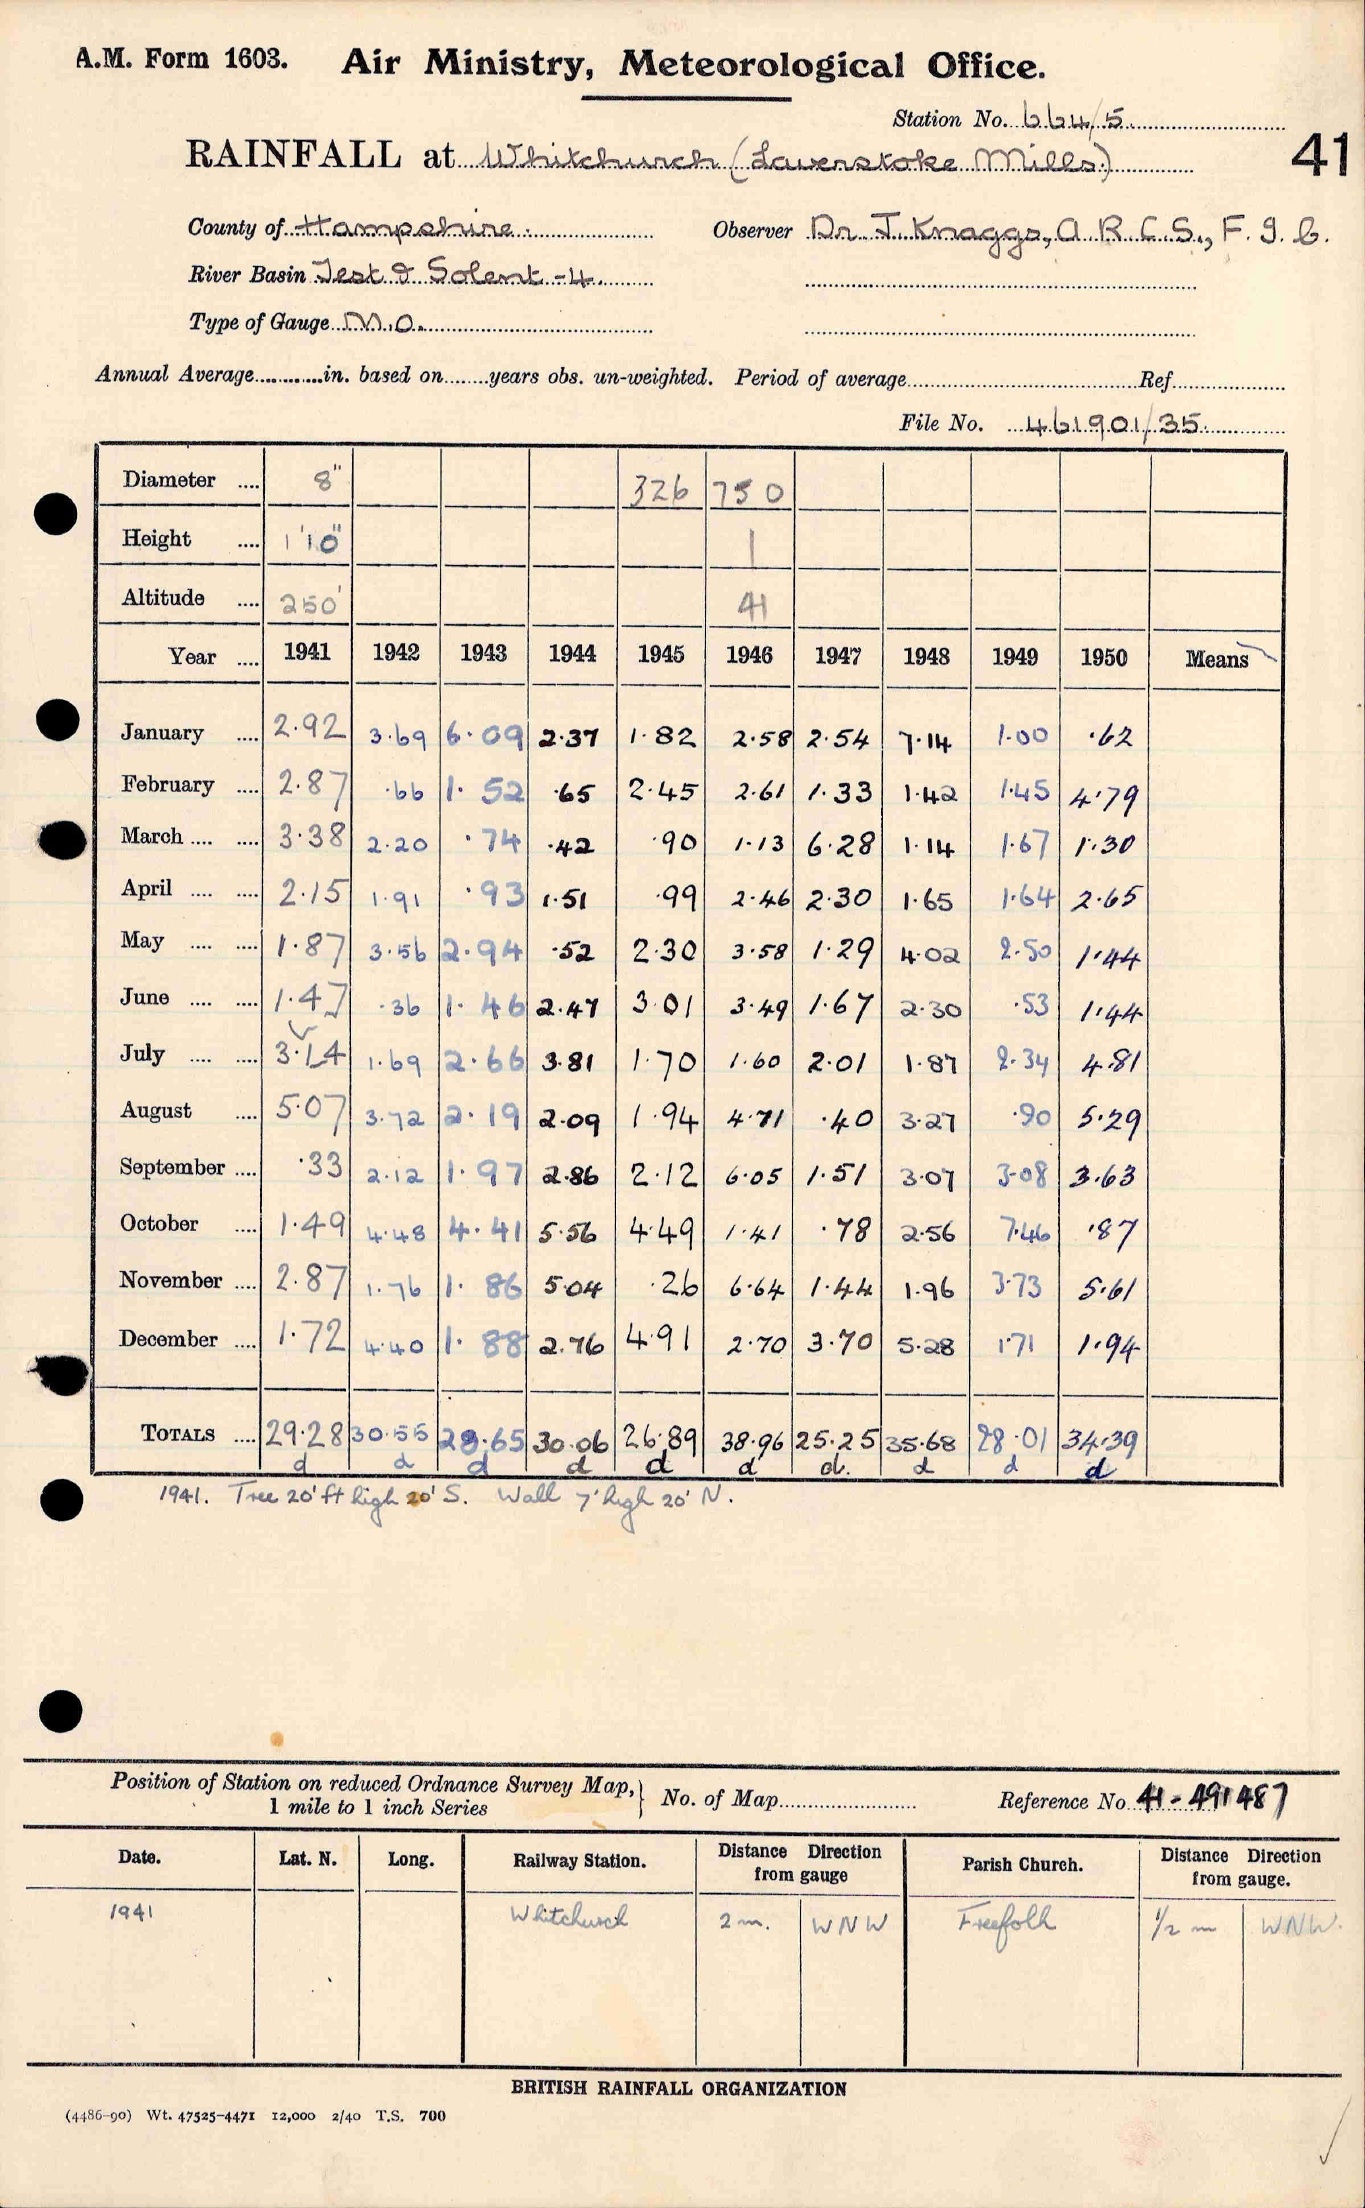 A.M. Form 1603. Air Ministry, Meteorological Office.
Station No. 664/5
RAINFALL at Whitchurch (Laverstoke Mills)
41
County of Hampshire. Observer Dr. J. Knaggs, A.R.C.S., F.I.C.
River Basin Test & Solent -4.
Type of Gauge M.O.
Annual Average............in. based on........years obs. un-weighted. Period of average Ref
File No. 461901/35
Diameter .... 8" 326 750
Height .... 1'10" 1
Altitude .... 250' 41
Year .... 1941 1942 1943 1944 1945 1946 1947 1948 1949 1950 Means
January .... 2.92 3.69 6.09 2.37 1.82 2.58 2.54 7.14 1.00 .62
February .... 2.87 .66 1.52 .65 2.45 2.61 1.33 1.42 1.45 4.79
March .... .... 3.38 2.20 .74 .42 .90 1.13 6.28 1.14 1.67 1.30
April .... .... 2.15 1.91 .93 1.51 .99 2.46 2.30 1.65 1.64 2.65
May .... .... 1.87 3.56 2.94 .52 2.30 3.58 1.29 4.02 2.50 1.44
June .... .... 1.47 .36 1.46 2.47 3.01 3.49 1.67 2.30 .53 1.44
July .... .... 3.14 1.69 2.66 3.81 1.70 1.60 2.01 1.87 2.34 4.81
August .... 5.07 3.72 2.19 2.09 1.94 4.71 .40 3.27 .90 5.29
September .... .33 2.12 1.97 2.86 2.12 6.05 1.51 3.07 3.08 3.63
October .... 1.49 4.48 4.41 5.56 4.49 1.41 .78 2.56 7.46 .87
November .... 2.87 1.76 1.86 5.04 .26 6.64 1.44 1.96 3.73 5.61
December .... 1.72 4.40 1.88 2.76 4.91 2.70 3.70 5.28 1.71 1.94
TOTALS .... 29.28 30.55 28.65 30.06 26.89 38.96 25.25 35.68 28.01 34.39
d d d d d d d. d d d
1941. Tree 20' ft high 20' S. Wall 7' high 20' N.
Position of Station on reduced Ordnance Survey Map, 1 mile to 1 inch Series } No. of Map Reference No. 41-491487
Date. Lat. N. Long. Railway Station. Distance Direction from gauge Parish Church. Distance Direction from gauge.
1941 Whitchurch 2 m. WNW Freefolk 1/2 m WNW.
BRITISH RAINFALL ORGANIZATION
(4486-90) Wt. 47525-4471 12,000 2/40 T.S. 700